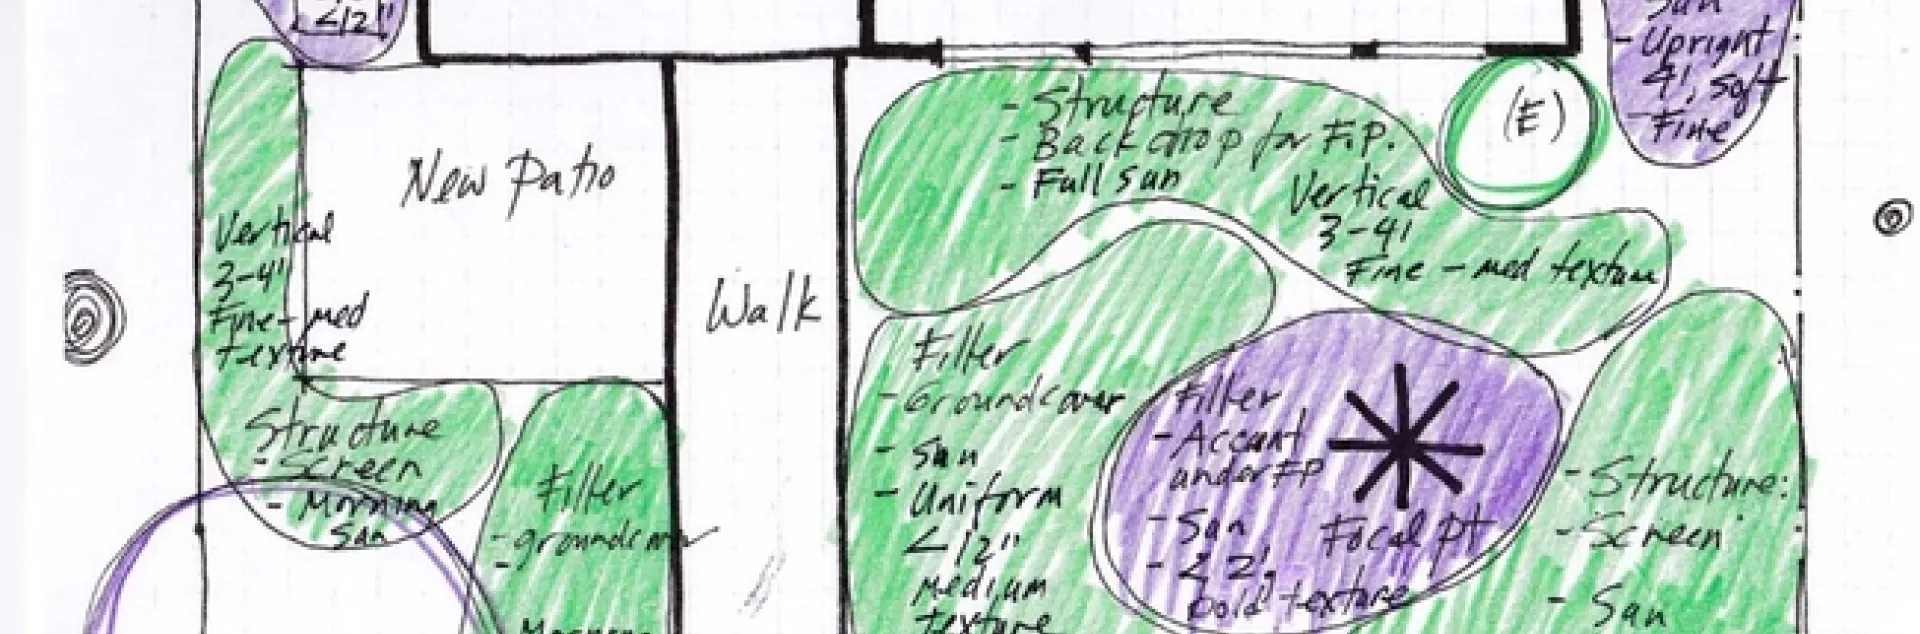 <12"
Sun
- Upright
4', soft
- Fine
(E)
- Structure
- Backdrop for F.P.
- Full sun
Vertical
3-4'
Fine - med texture
New Patio
Walk
Vertical
3-4'
Fine - med
texture
Structure
- Screen
- Morning
Sun
Filler
- groundcover
-
Morning
Filler
- Groundcover
- Sun
- Uniform
<12"
medium
texture
Filler
- Accent
under FP
- Sun
- < 2',
bold texture
Focal pt
- Structure:
- Screen
- Sun